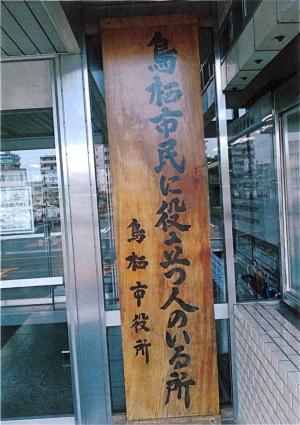 鳥栖市民に役立つ人のいる所
鳥栖市役所